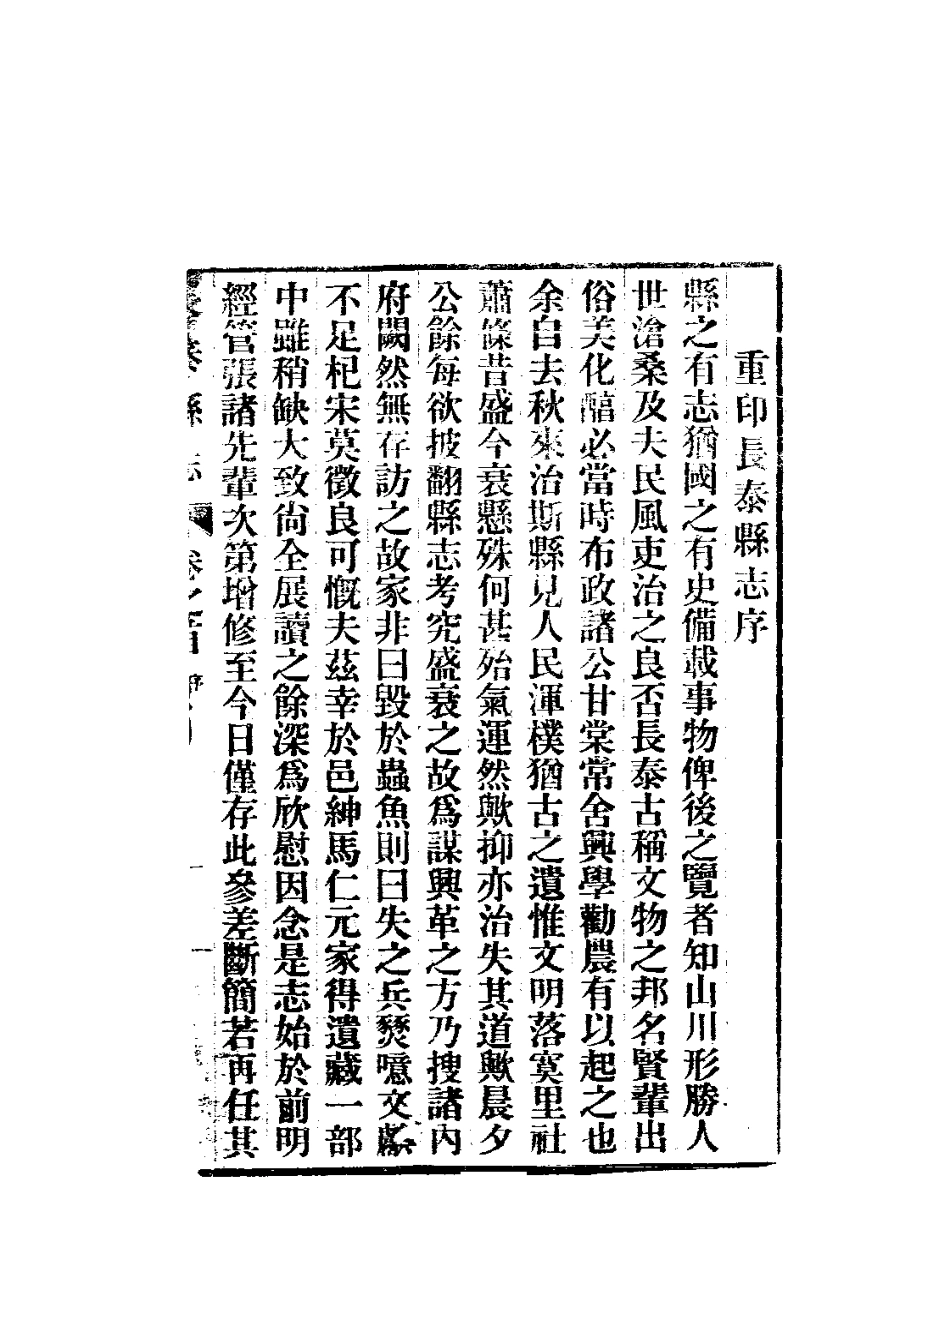 重印長泰縣志序
縣之有志猶國之有史備載事物俾後之覽者知山川形勝人
世滄桑及夫民風吏治之良否長泰古稱文物之邦名賢輩出
俗美化醕必當時布政諸公甘棠常舍興學勸農有以起之也
余自去秋來治斯縣見人民渾樸猶古之遺惟文明落寞里社
蕭條昔盛今衰懸殊何甚殆氣運然歟抑亦治失其道歟晨夕
公餘每欲披翻縣志考究盛衰之故爲謀興革之方乃搜諸內
府闕然無存訪之故家非曰毀於蟲魚則曰失之兵燹噫文獻
不足杞宋莫徵良可慨夫茲幸於邑紳馬仁元家得遺藏一部
中雖稍缺大致尙全展讀之餘深爲欣慰因念是志始於前明
經管張諸先輩次第增修至今日僅存此參差斷簡若再任其
縣志 卷之 序